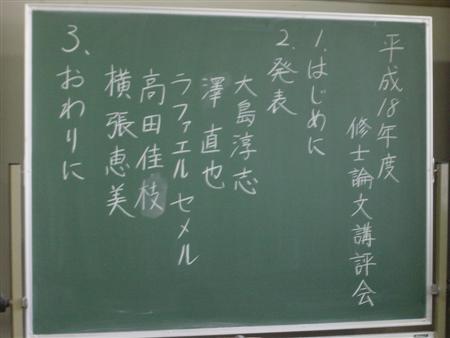 平成18年度
修士論文講評会
1.はじめに
2.発表
大島淳志
澤 直也
ラファエル セメル
高田佳枝
横張恵美
3、おわりに